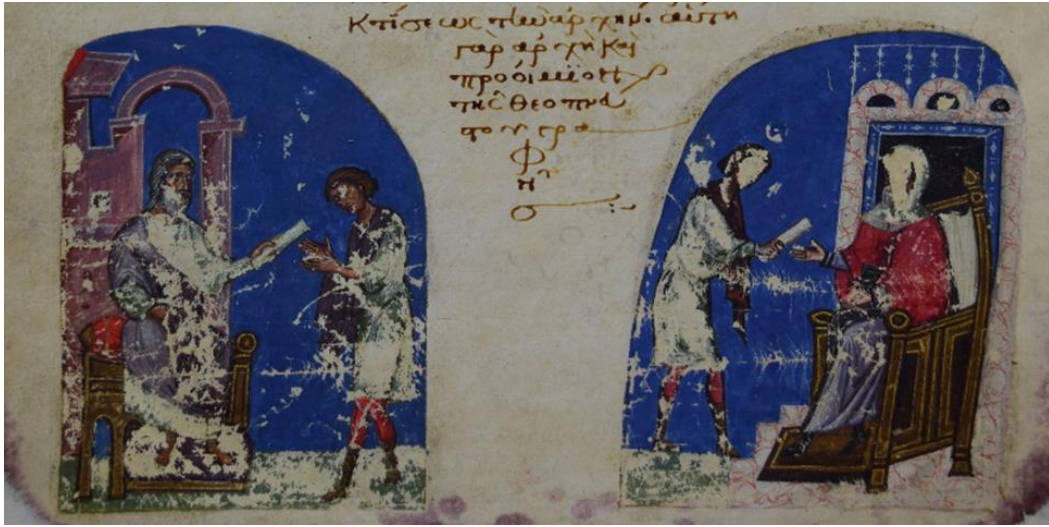 κτίσεως τὴν ἀρχήν· αὕτη
γὰρ ἀρχὴ καὶ
προοίμιον
τῆς θεοπνεύ
στου γρα
φ
ῆ
ς